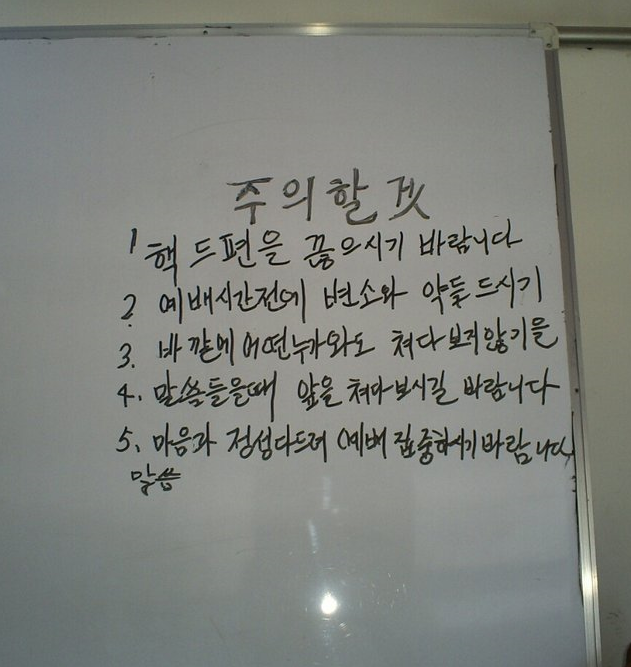 주의할 겻
1 핵 드편을 끊으시기 바람니다
2. 예배시간전에 변소와 약들 드시기
3. 바깥에 어떤누가와도 쳐다 보지않기를
4. 말씀들을때 앞을 쳐다보시길 바람니다
5. 마음과 정성다드려 예배 집중하시기바람니다
말씀